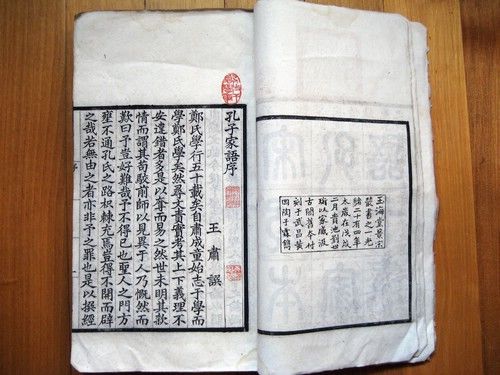 玉海堂景宋
叢書之一光
緒二十有四年
太歲在戊戌
二月貴池劉世
珩以家藏汲
古閣舊本付
刻于武昌黃
岡陶子麟鐫
孔子家語序
王肅譔
鄭氏學行五十載矣自肅成童始志于學而
學鄭氏學矣然尋文責實考其上下義理不
安違錯者多是以奪而易之然世未明其款
情而謂其苟駮前師以見異于人乃慨然而
歎曰予豈好難哉予不得已也聖人之門方
壅不通孔氏之路枳棘充焉豈得不開而辟
之哉若無由之者亦非予之罪也是以撰經
序
一